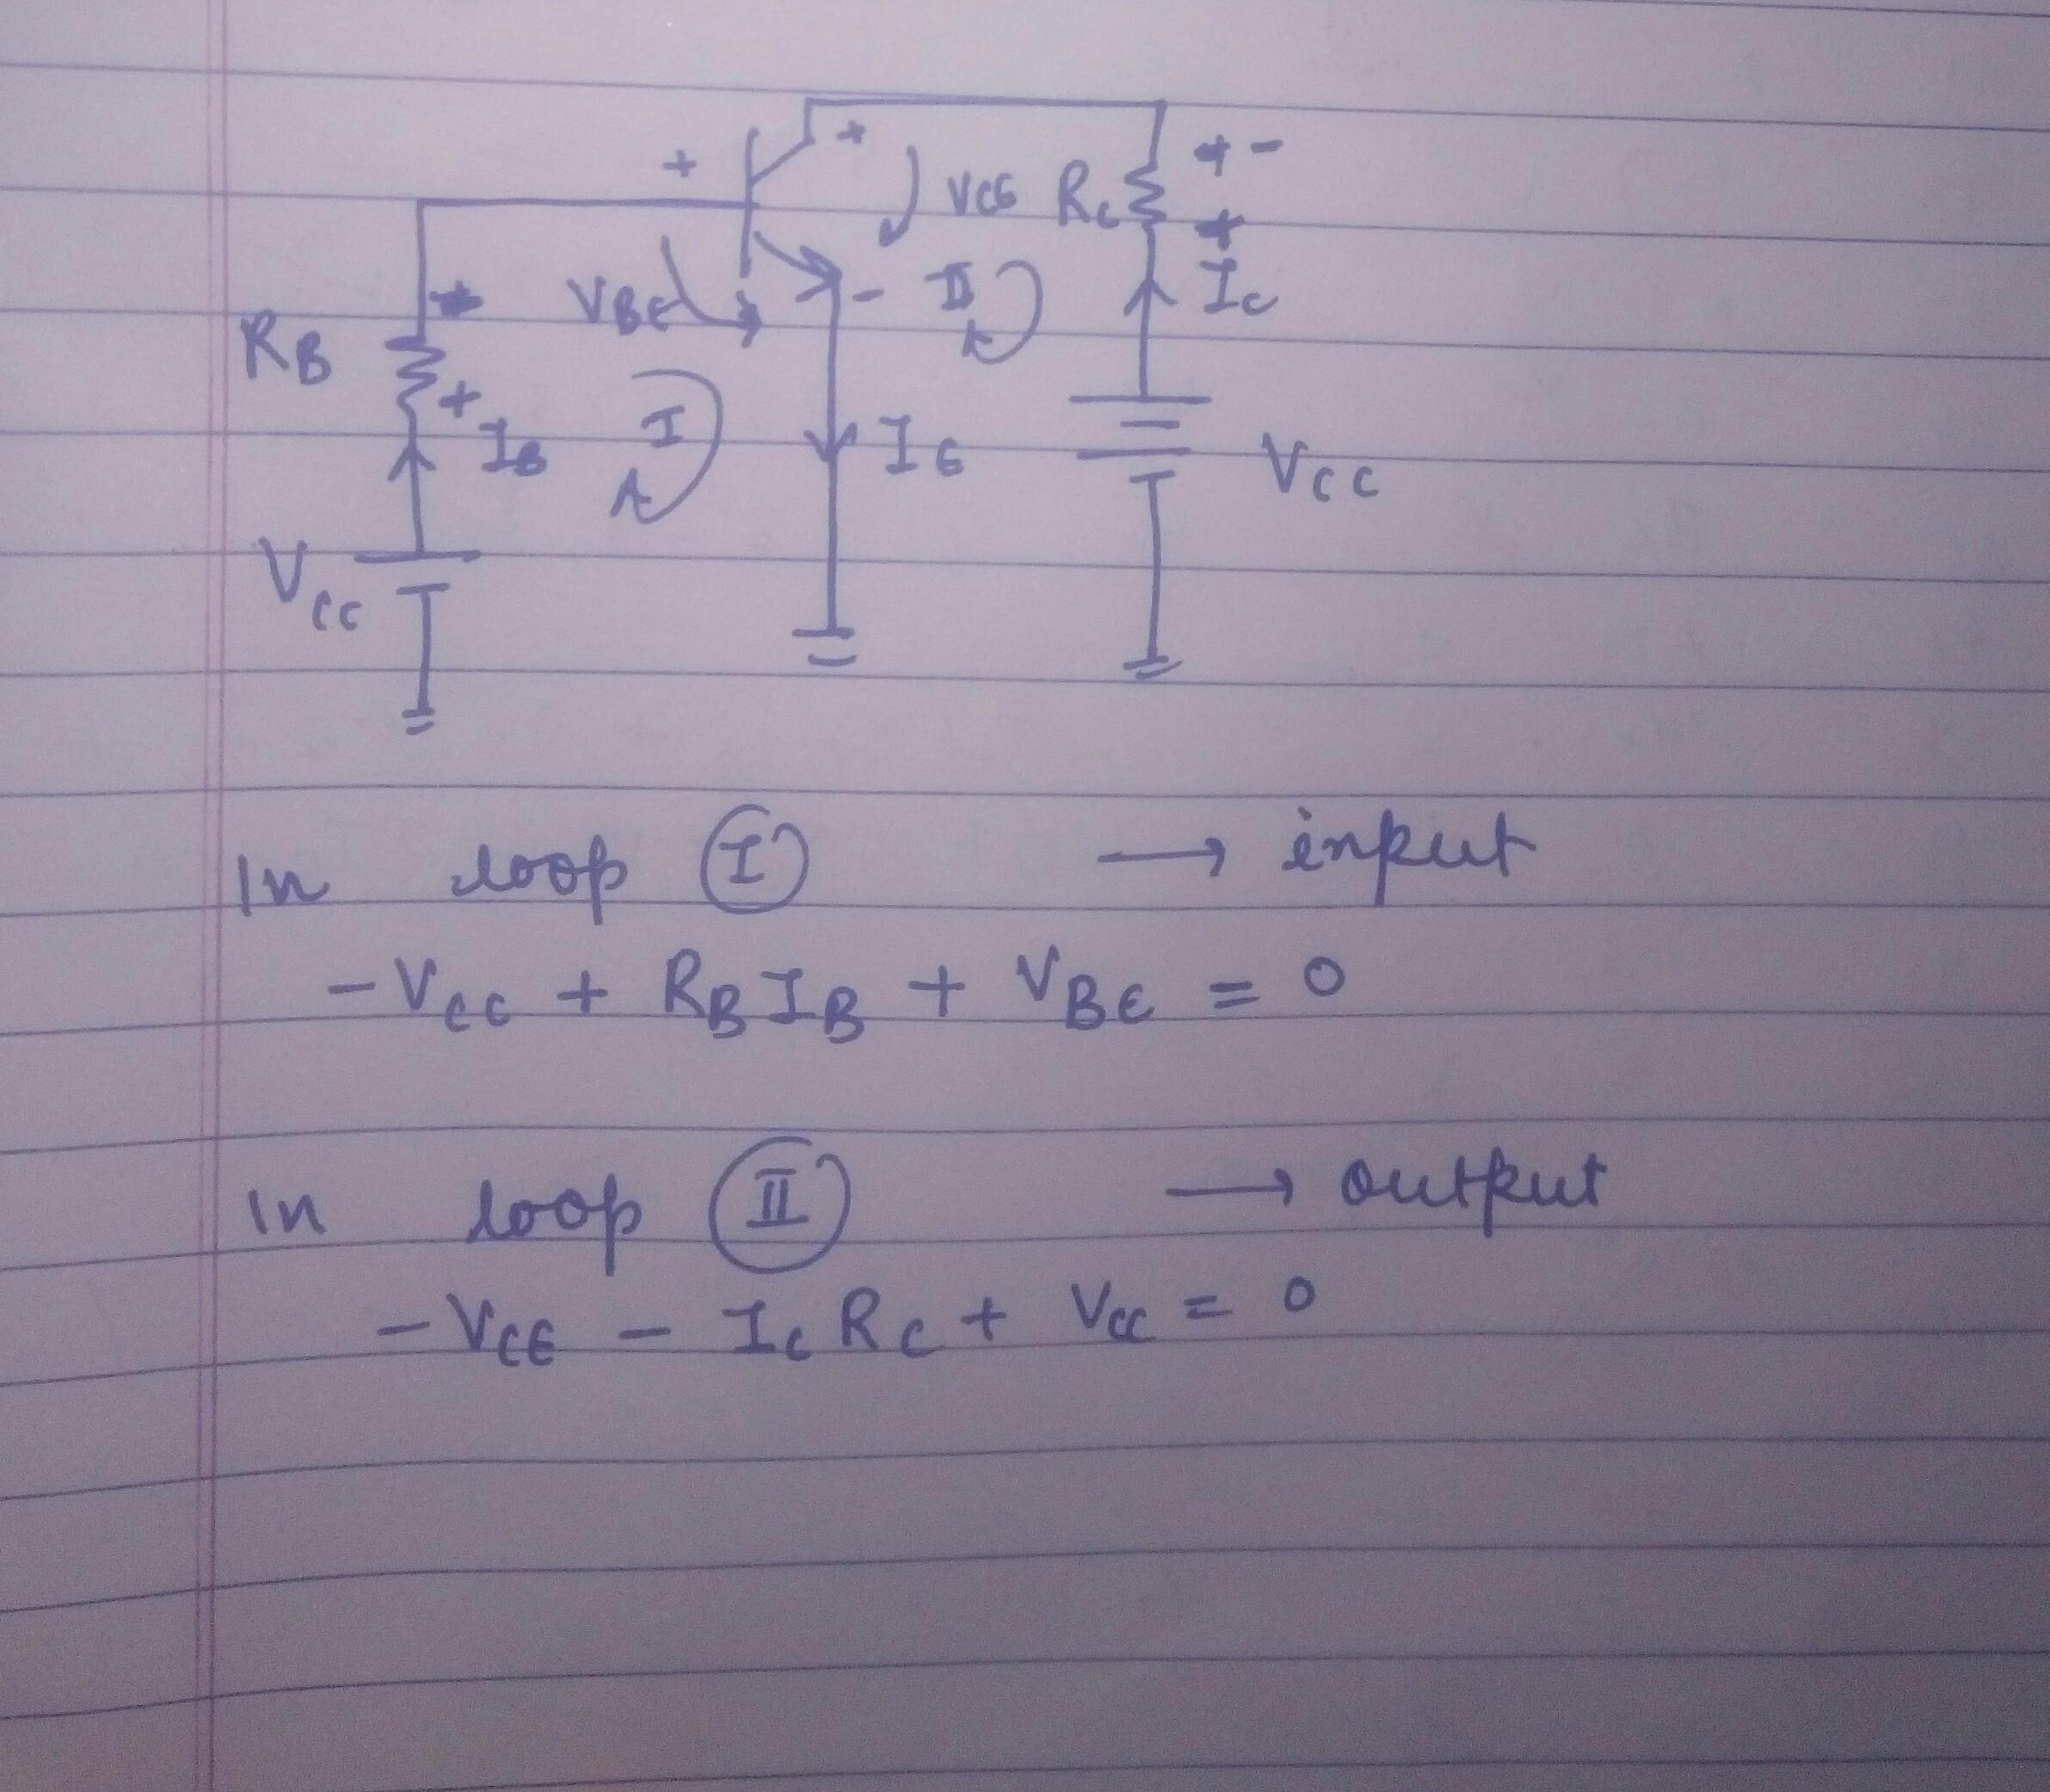 + + + -
VCE RC
+
VBE - II IC
RB
+ IB I IE
VCC
VCC
In loop I → input
-VCC + RB IB + VBE = 0
In loop II → output
-VCE - IC RC + VCC = 0